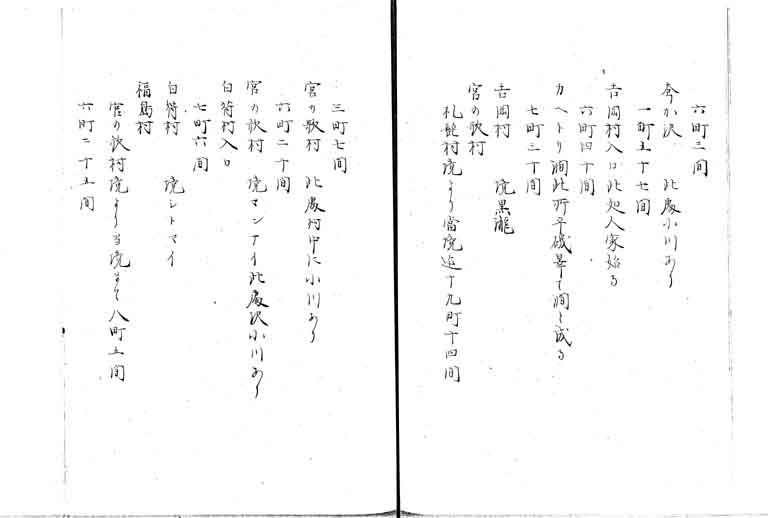 六町三間
今か沢　此處小川あり
一町五十七間
吉岡村入口此処人家始る
六町四十間
カヘトリ澗此所平磯岩にて澗と成る
七町三十間
吉岡村　境黒瀧
宮の歌村
礼髭村境より當境迄十九町十四間
三町七間
宮の歌村　此處村中に小川あり
六町二十間
宮の歌村　境マンナイ此處沢小川あり
白符村入口
七町六間
白符村　境シトマイ
福島村
宮の歌村境より当境まて八町五間
六町二十五間